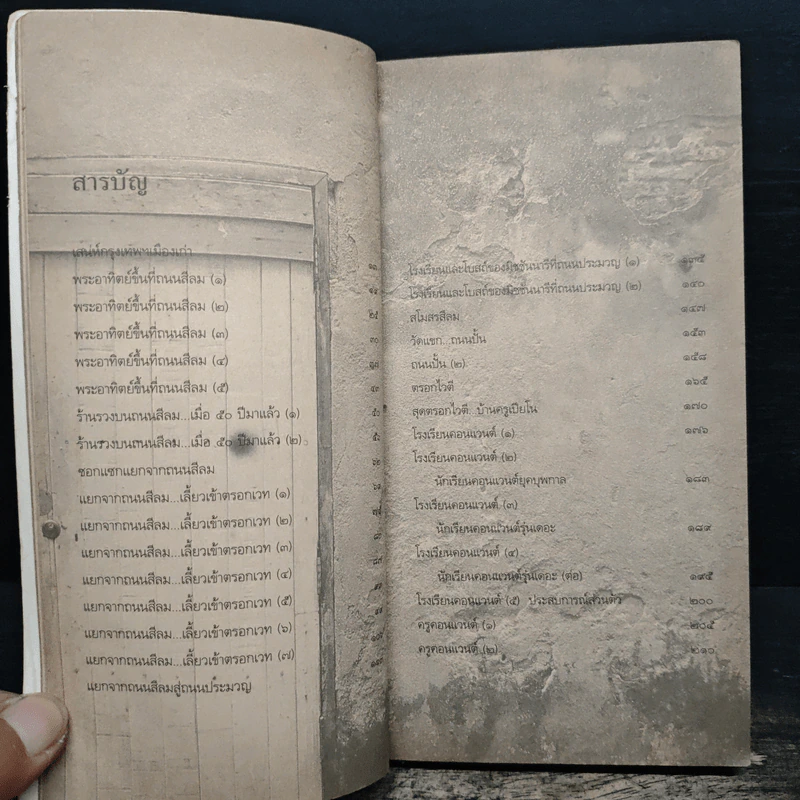 สารบัญ
เสน่ห์กรุงเทพฯเมืองเก่า
พระอาทิตย์ขึ้นที่ถนนสีลม (๑)
พระอาทิตย์ขึ้นที่ถนนสีลม (๒)
พระอาทิตย์ขึ้นที่ถนนสีลม (๓)
พระอาทิตย์ขึ้นที่ถนนสีลม (๔)
พระอาทิตย์ขึ้นที่ถนนสีลม (๕)
ร้านรวงบนถนนสีลม...เมื่อ ๕๐ ปีมาแล้ว (๑)
ร้านรวงบนถนนสีลม...เมื่อ ๕๐ ปีมาแล้ว (๒)
ซอกแซกแยกจากถนนสีลม
แยกจากถนนสีลม...เลี้ยวเข้าตรอกเวท (๑)
แยกจากถนนสีลม...เลี้ยวเข้าตรอกเวท (๒)
แยกจากถนนสีลม...เลี้ยวเข้าตรอกเวท (๓)
แยกจากถนนสีลม...เลี้ยวเข้าตรอกเวท (๔)
แยกจากถนนสีลม...เลี้ยวเข้าตรอกเวท (๕)
แยกจากถนนสีลม...เลี้ยวเข้าตรอกเวท (๖)
แยกจากถนนสีลม...เลี้ยวเข้าตรอกเวท (๗)
แยกจากถนนสีลมสู่ถนนประมวญ
โรงเรียนและโบสถ์ของมิชชันนารีที่ถนนประมวญ (๑) ๑๓๕
โรงเรียนและโบสถ์ของมิชชันนารีที่ถนนประมวญ (๒) ๑๔๐
สโมสรสีลม ๑๔๗
วัดแขก...ถนนปั้น ๑๕๓
ถนนปั้น (๒) ๑๕๘
ตรอกไวตี ๑๖๕
สุดตรอกไวตี...บ้านครูเปียโน ๑๗๐
โรงเรียนคอนแวนต์ (๑) ๑๗๖
โรงเรียนคอนแวนต์ (๒)
นักเรียนคอนแวนต์ยุคบุพกาล ๑๘๓
โรงเรียนคอนแวนต์ (๓)
นักเรียนคอนแวนต์รุ่นเดอะ ๑๘๙
โรงเรียนคอนแวนต์ (๔)
นักเรียนคอนแวนต์รุ่นเดอะ (ต่อ) ๑๙๕
โรงเรียนคอนแวนต์ (๕) ประสบการณ์ส่วนตัว ๒๐๐
ครูคอนแวนต์ (๑) ๒๐๕
ครูคอนแวนต์ (๒) ๒๑๐